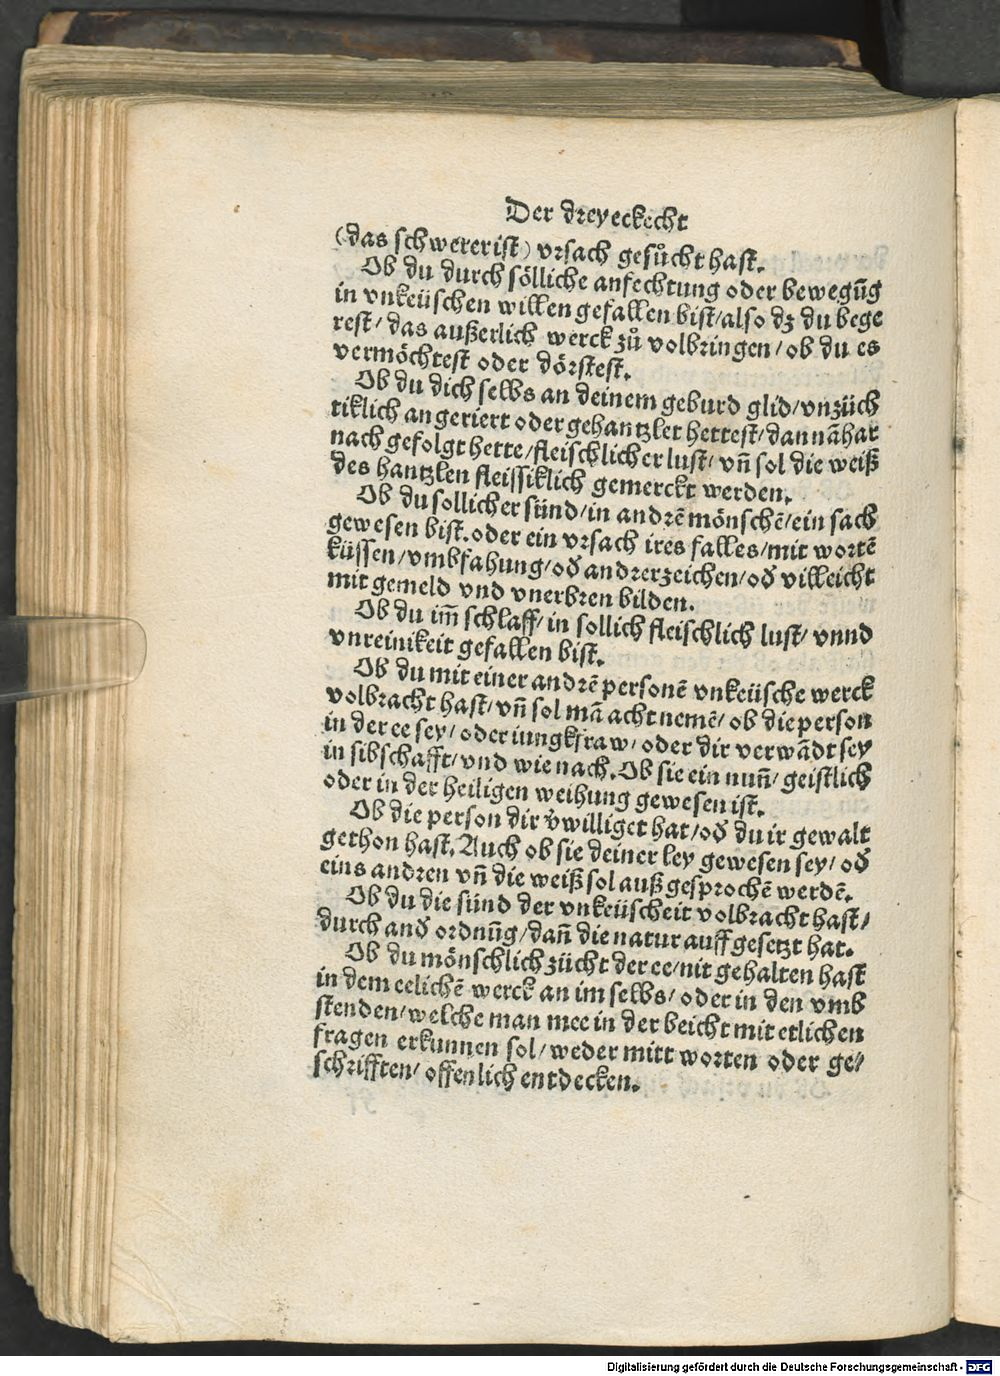 Der dreyeckecht
(das schwerer ist) vrsach gesůcht hast.
Ob du durch sölliche anfechtung oder bewegūg
in vnkeüschen willen gefallen bist/also dz du bege
rest/ das außerlich werck zů volbringen/ ob du es
vermöchtest oder dörstest.
Ob du dich selbs an deinem geburd glid/vnzüch
tiklich angeriert oder gehantzlet hettest/dannāhar
nach gefolgt hette/fleischlicher lust/ vn̄ sol die weiß
des hantzlen fleissiklich gemerckt werden.
Ob du sollicher sünd/in andrē mönschē/ein sach
gewesen bist. oder ein vrsach ires falles/mit wortē
küssen/vmbfahung/oď andrerzeichen/oď villeicht
mit gemeld vnd vnerbren bilden.
Ob du im̄ schlaff/ in sollich fleischlich lust/ vnnd
vnreinikeit gefallen bist.
Ob du mit einer andrē personē vnkeüsche werck
volbracht hast/ vn̄ sol mā acht nemē/ ob die person
in der ee sey/ oder iungkfraw/ oder dir verwādt sey
in sibschafft/vnd wie nach. Ob sie ein nun̄/ geistlich
oder in der heiligen weihung gewesen ist.
Ob die person dir v̓williget hat/oď du ir gewalt
gethon hast. Auch ob sie deiner ley gewesen sey/ oď
eins andren vn̄ die weiß sol auß gesprochē werdē.
Ob du die sünd der vnkeüscheit volbracht hast/
durch anď ordnūg/dan̄ die natur auff gesetzt hat.
Ob du mönschlich zücht der ee/nit gehalten hast
in dem eelichē werck an im selbs/ oder in den vmb
stenden/welche man mee in der beicht mit etlichen
fragen erkunnen sol/weder mitt worten oder ge/
schrifften/ offenlich entdecken.
Digitalisierung gefördert durch die Deutsche Forschungsgemeinschaft - DFG